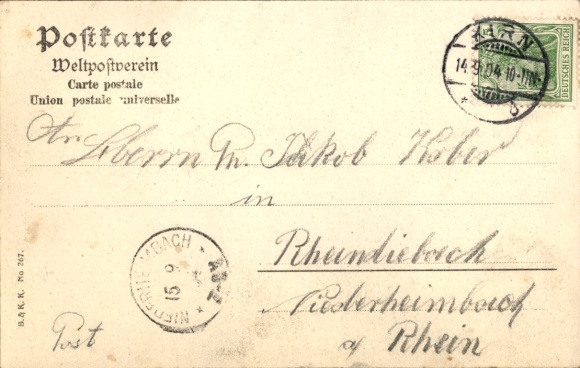 Postkarte
Weltpostverein
Carte postale
Union postale universelle
KIRN
14.9.04.10-11N.
* b
DEUTSCHES REICH
An Herrn Ph. Jakob Kober
in
Rheindiebach
Niederheimbach
a/ Rhein
Post
NIEDERHEIMBACH
15 9
B. & K. K. No. 267.